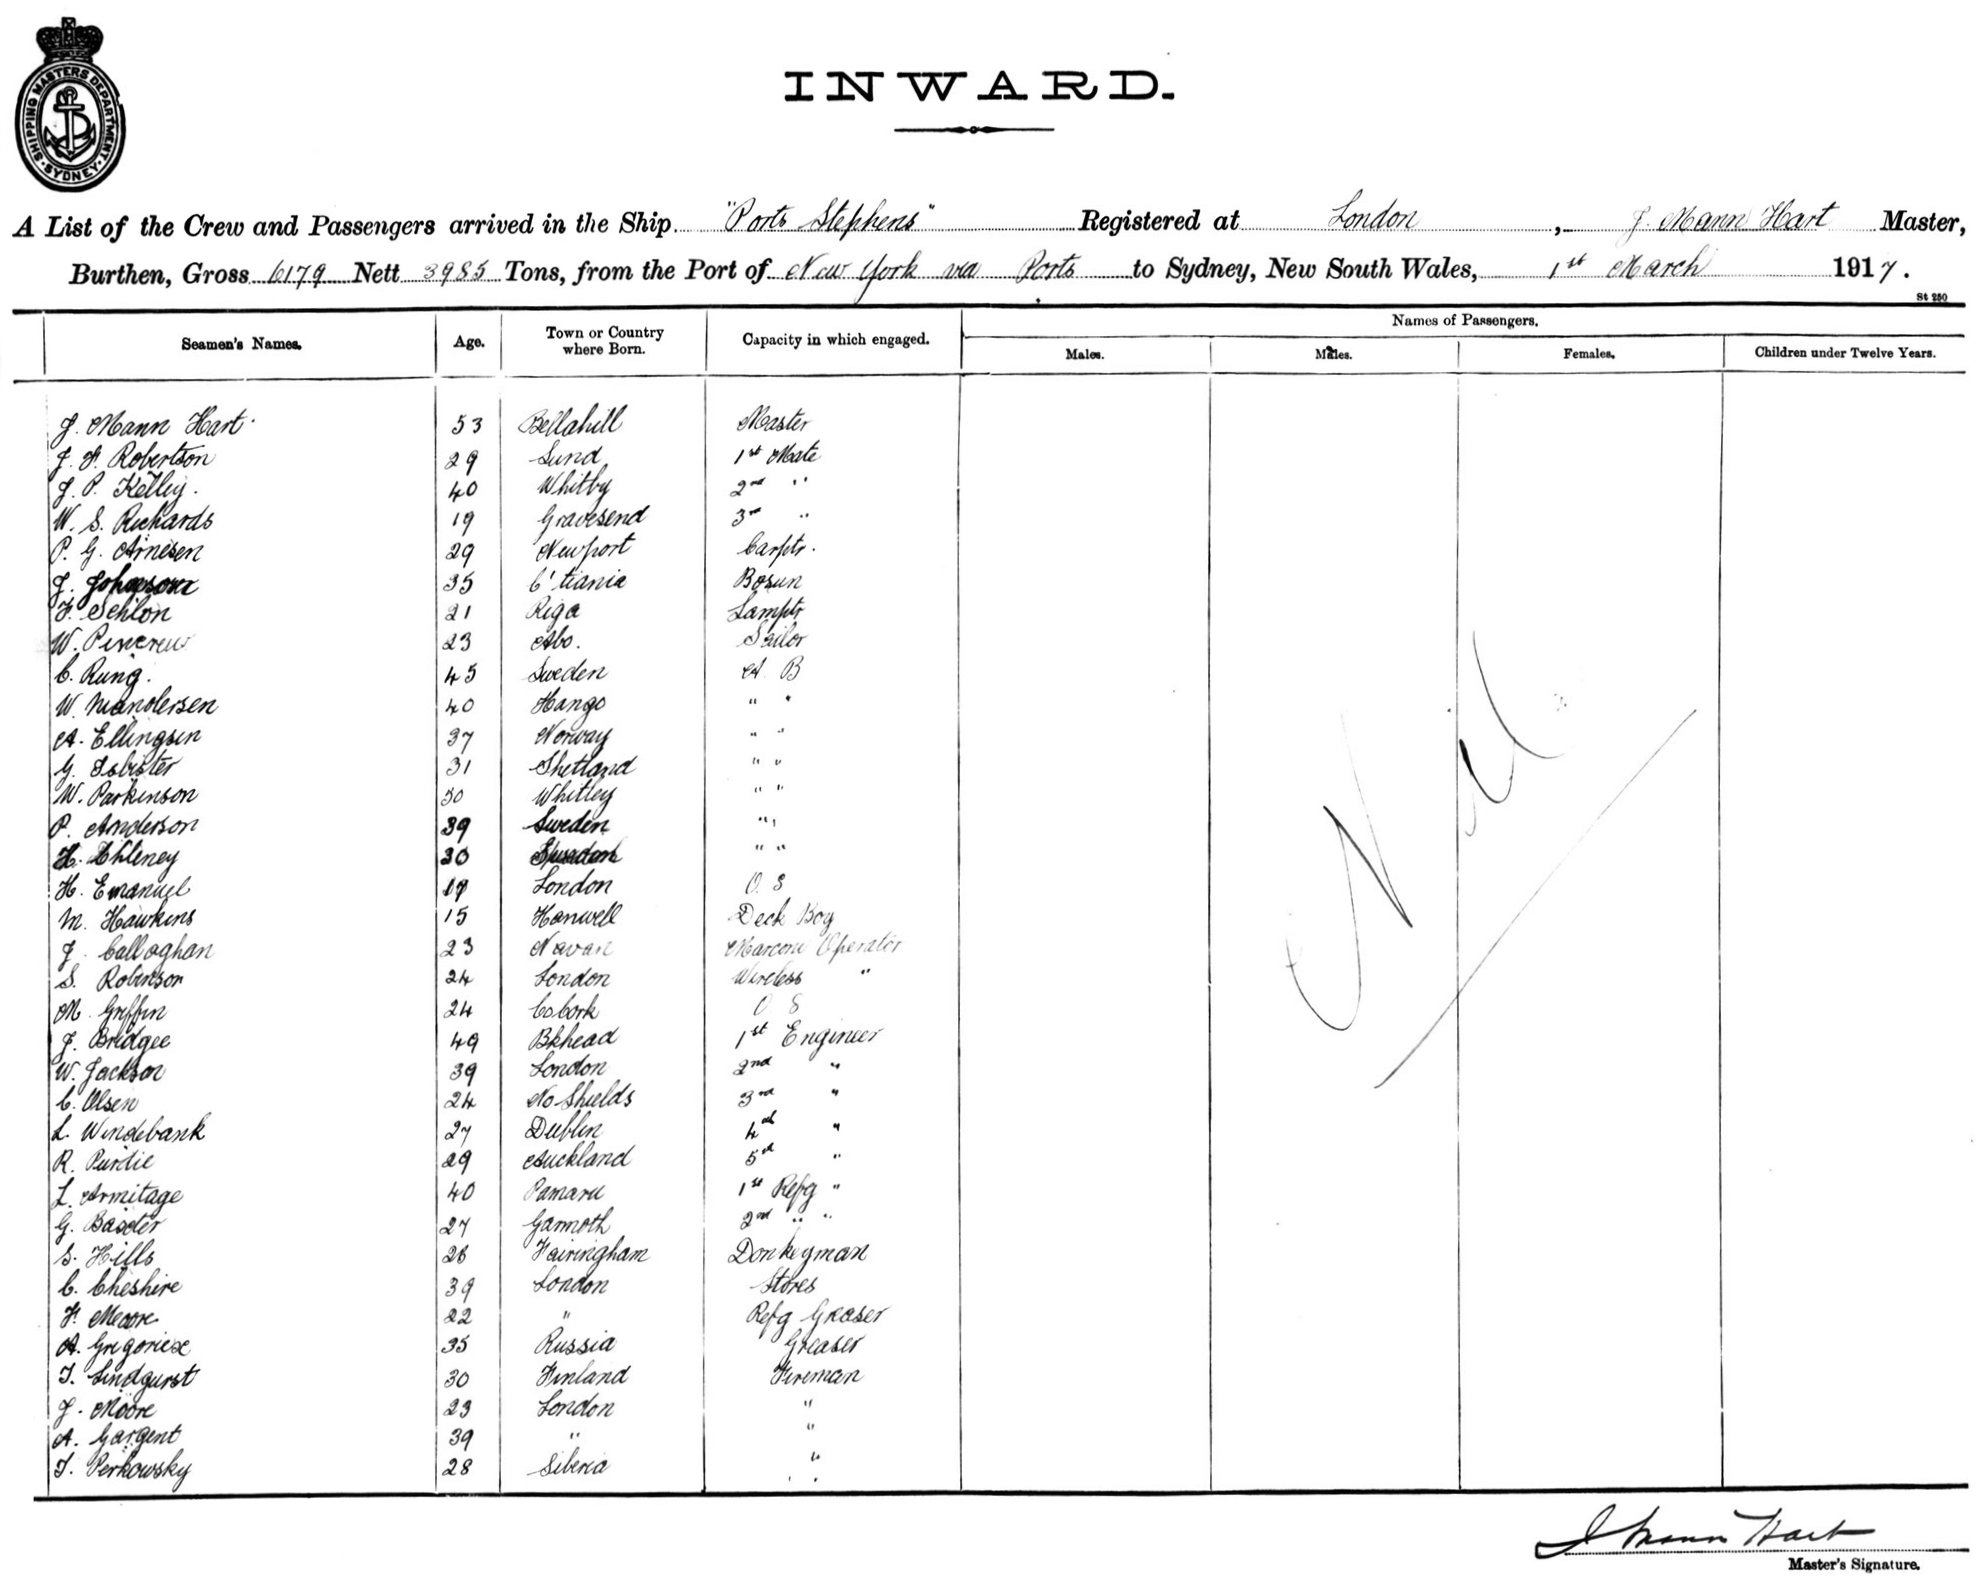 SHIPPING MASTERS DEPARTMENT
· SYDNEY ·
INWARD.
A List of the Crew and Passengers arrived in the Ship "Port Stephens" Registered at London, J. Mann Hart Master,
Burthen, Gross 6179 Nett 3985 Tons, from the Port of New York via Ports to Sydney, New South Wales, 1st March 1917.
St 250
Seamen's Names. Age. Town or Country where Born. Capacity in which engaged. Names of Passengers.
Males. Males. Females. Children under Twelve Years.
J. Mann Hart 53 Bellahill Master
J. F. Robertson 29 Sund 1st Mate
J. P. Kelley. 40 Whitby 2nd "
W. S. Richards 19 Gravesend 3rd "
P. G. Arnesen 29 Newport Carptr.
J. Johnson 35 C'tiania Bosun
F. Sehlon 21 Riga Lamptr
W. 23 Abo. Sailor
C. Rung. 45 Sweden A B
W. Mandersen 40 Hango " "
A. Ellingsen 37 Norway " "
G. Isbister 31 Shetland " "
W. Parkinson 30 Whitley " "
P. Anderson 39 Sweden " "
H. 30 " "
H. Emanuel 19 London O. S
M. Hawkins 15 Hanwell Deck Boy
J. Callaghan 23 Navan Marconi Operator
S. Robinson 24 London Wireless "
M. Griffin 24 Co Cork O S
J. Bridgee 49 Bkhead 1st Engineer
W. Jackson 39 London 2nd "
C. Olsen 24 No Shields 3rd "
L. Windebank 27 Dublin 4th "
R. Purdie 29 Auckland 5th "
L. Armitage 40 1st Refg "
G. Baxter 27 Garmoth 2nd " "
S. Hills 26 Fairingham Donkeyman
C. Cheshire 39 London Stores
F. Moore 22 " Refg Greaser
A. 35 Russia Greaser
T. Lindgurst 30 Finland Fireman
J. Moore 23 London "
A. Gargent 39 " "
T. Perkowsky 28 Siberia "
Nil
J Mann Hart
Master's Signature.